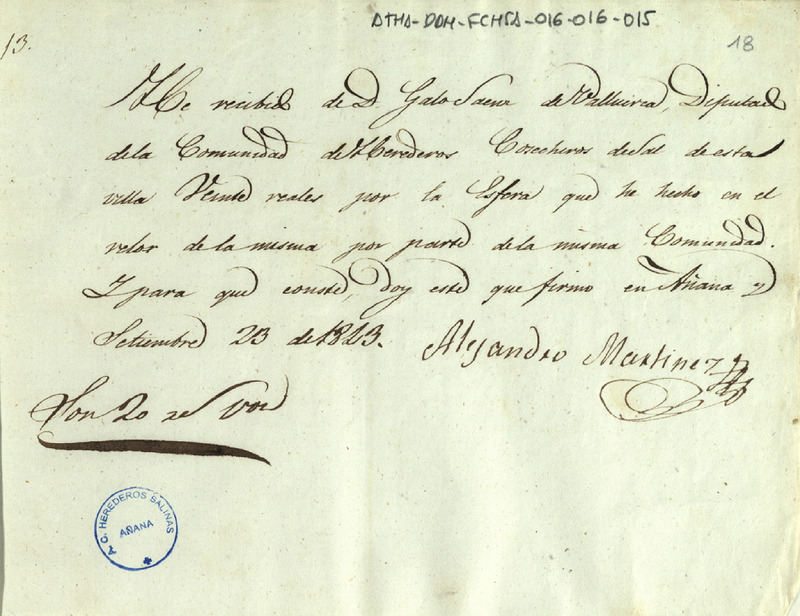 ATHA-DAH-FCHSA-016-016-015
13.
18
He recibido de D. Galo Saenz de Valluerca, Diputado
de la Comunidad de Herederos Cosecheros de Sal de esta
villa Veinte reales por la Esfera que he hecho en el
relox de la misma por parte de la misma Comunidad.
Y para que conste, doy este que firmo en Añana y
Setiembre 23 de 1823.
Alejandro Martinez
Son 20 rs von
A. C. HEREDEROS SALINAS
AÑANA